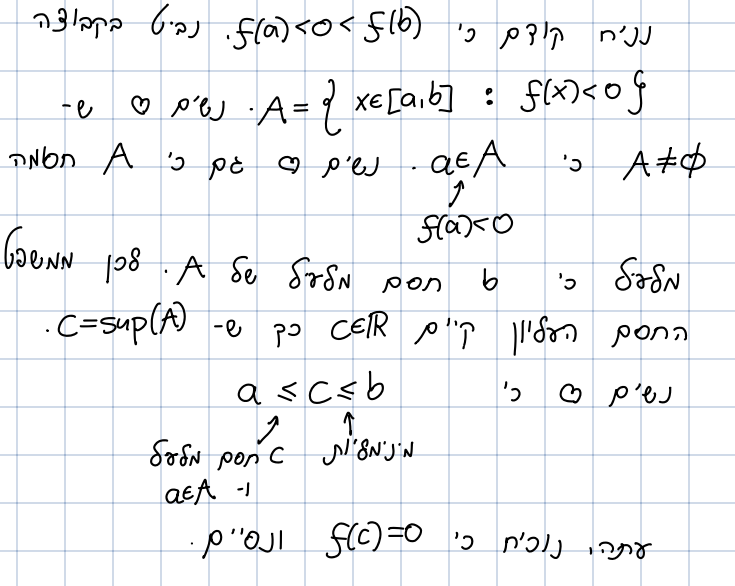 נניח קודם כי f(a)<0<f(b). נביט בקבוצה
A={ x∈[a,b] : f(x)<0 }. נשים ♡ ש-
A≠∅ כי a∈A. נשים ♡ גם כי A חסומה
f(a)<0
מלעיל כי b חסם מלעיל של A. לכן ממשפט
החסם העליון קיים c∈ℝ כך ש- c=sup(A).
נשים ♡ כי a ≤ c ≤ b
c חסם מלעיל מינימליות
ו- a∈A
עתה, נוכיח כי f(c)=0 ונסיים.